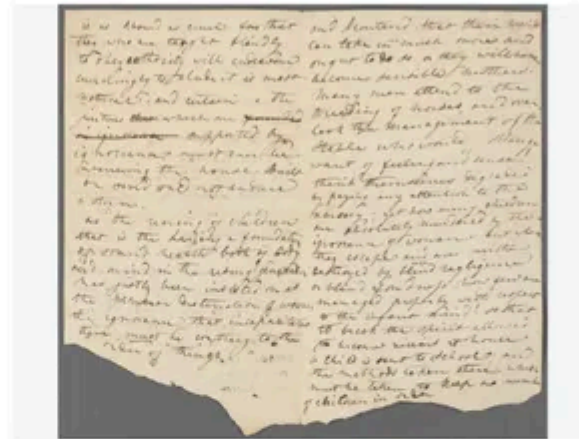 it is
they who are taught blindly
to obey authority will endeavour
cunningly to elude it is most
natural and certain & the
which are
supported by
ignorance must
the house built
on sand
storm
As the rearing of children
that is the laying a foundation
of sound health both of body
and mind in the rising
has justly been insisted on as
the destination of women
the ignorance that incapacitates
them must be contrary to the
order of things
and I contend that their minds
can take in much more and
ought to do so or they will never
become sensible mothers.
Many men attend to the
breeding of horses and over
look the management of the
stable who would strange
want of feeling and sense!
think themselves degraded
by paying any attention to the
nursery; yet how many children
are absolutely murdered by the
ignorance of women but when
they escape and are neither
destroyed by negligence
or blind fondness how few are
managed properly with respect
to the infant mind! so that
to break the spirit allowed
to become vicious at home
a child is sent to school and
the methods taken there which
must be taken to keep a number
of children in order